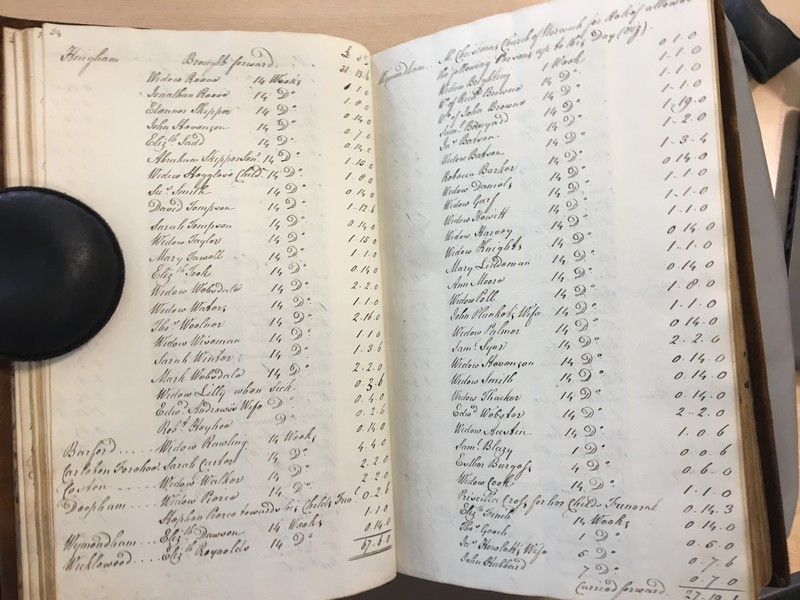 24
£ s d
Hingham Brought forward
Widow Reeve 14 Weeks 1.1.0
Jonathan Reeve 14 Do 1.8.0
Eleanor Skipper 14 Do 0.14.0
John Stevenson 14 Do 0.7.0
Elizth Ladd 14 Do 0.14.0
Abraham Skipper Senr 14 Do 1.15.0
Widow Hogglove Child 14 Do 1.8.0
Smith 14 Do 0.14.0
David Tompson 14 Do 1.12.6
Sarah Tompson 14 Do 0.14.0
Widow Taylor 14 Do 1.15.0
Mary Jewell 14 Do 1.1.0
Elizth Took 14 Do 0.14.0
Widow Wobsdale 14 Do 2.2.0
Widow Waters 14 Do 1.1.0
Thos Woolnor 14 Do 2.16.0
Widow Wiseman 14 Do 1.1.0
Sarah Winter 14 Do 1.3.6
Mark Wobsdale 14 Do 2.2.0
Widow Lilly when sick 0.3.6
Edwd Andrews's Wife Do 0.4.0
Robt Hoyhoe Do 0.2.6
Barford Widow Rawling 14 Weeks 0.14.0
Carleton Forehoe Sarah Curtor 14 Do 4.4.0
Coston Widow Walker 14 Do 2.2.0
Deopham Widow Pierce 14 Do 2.2.0
Stephen Pierce towards his Childs Funl 0.2.6
Wymondham Elizth Dawson 14 Weeks 1.1.0
Wicklewood Elizth Reynolds 14 Do 0.14.0
67.6.0
Wymondham Church of Norwich for allowed
the following Persons up to this Day (Viz)
Widow Brighting 1 Week 0.1.0
Wo of Richd Browne 14 Do 1.1.0
Wo of John Browne 14 Do 1.1.0
Saml Bowyard 14 Do 1.19.0
Batson 14 Do 1.2.0
Widow Batson 14 Do
Rebecca Barker 14 Do 1.3.4
Widow Daniels 14 Do 0.14.0
Widow Garf 14 Do 1.1.0
Widow Howitt 14 Do 1.1.0
Widow Harvey 14 Do 1.1.0
Widow Knights 14 Do 0.14.0
Mary Lindoman 14 Do 1.1.0
Ann Moore 14 Do 0.14.0
Widow Poll 14 Do 1.8.0
John Plunkets Wife 14 Do 1.1.0
Widow Palmer 14 Do 0.14.0
Saml Syer 14 Do 2.2.0
Widow Stevenson 14 Do 0.14.0
Widow Smith 14 Do 0.14.0
Widow Thacker 14 Do 0.14.0
Edwd Webster 14 Do 2.2.0
Widow Austin 14 Do 1.0.6
Saml Blazy 1 Do 0.0.6
Esther Burgess 4 Do 0.6.0
Widow Cook 14 Do 1.1.0
Priscilla Cross for her Childs Funeral 0.14.3
Elizth Finch 14 Weeks 0.14.0
Thos Gooch 1 Do 0.5.0
Jas Howletts Wife 5 Do 0.7.6
John Hubbard 7 Do 0.7.0
Carried forward